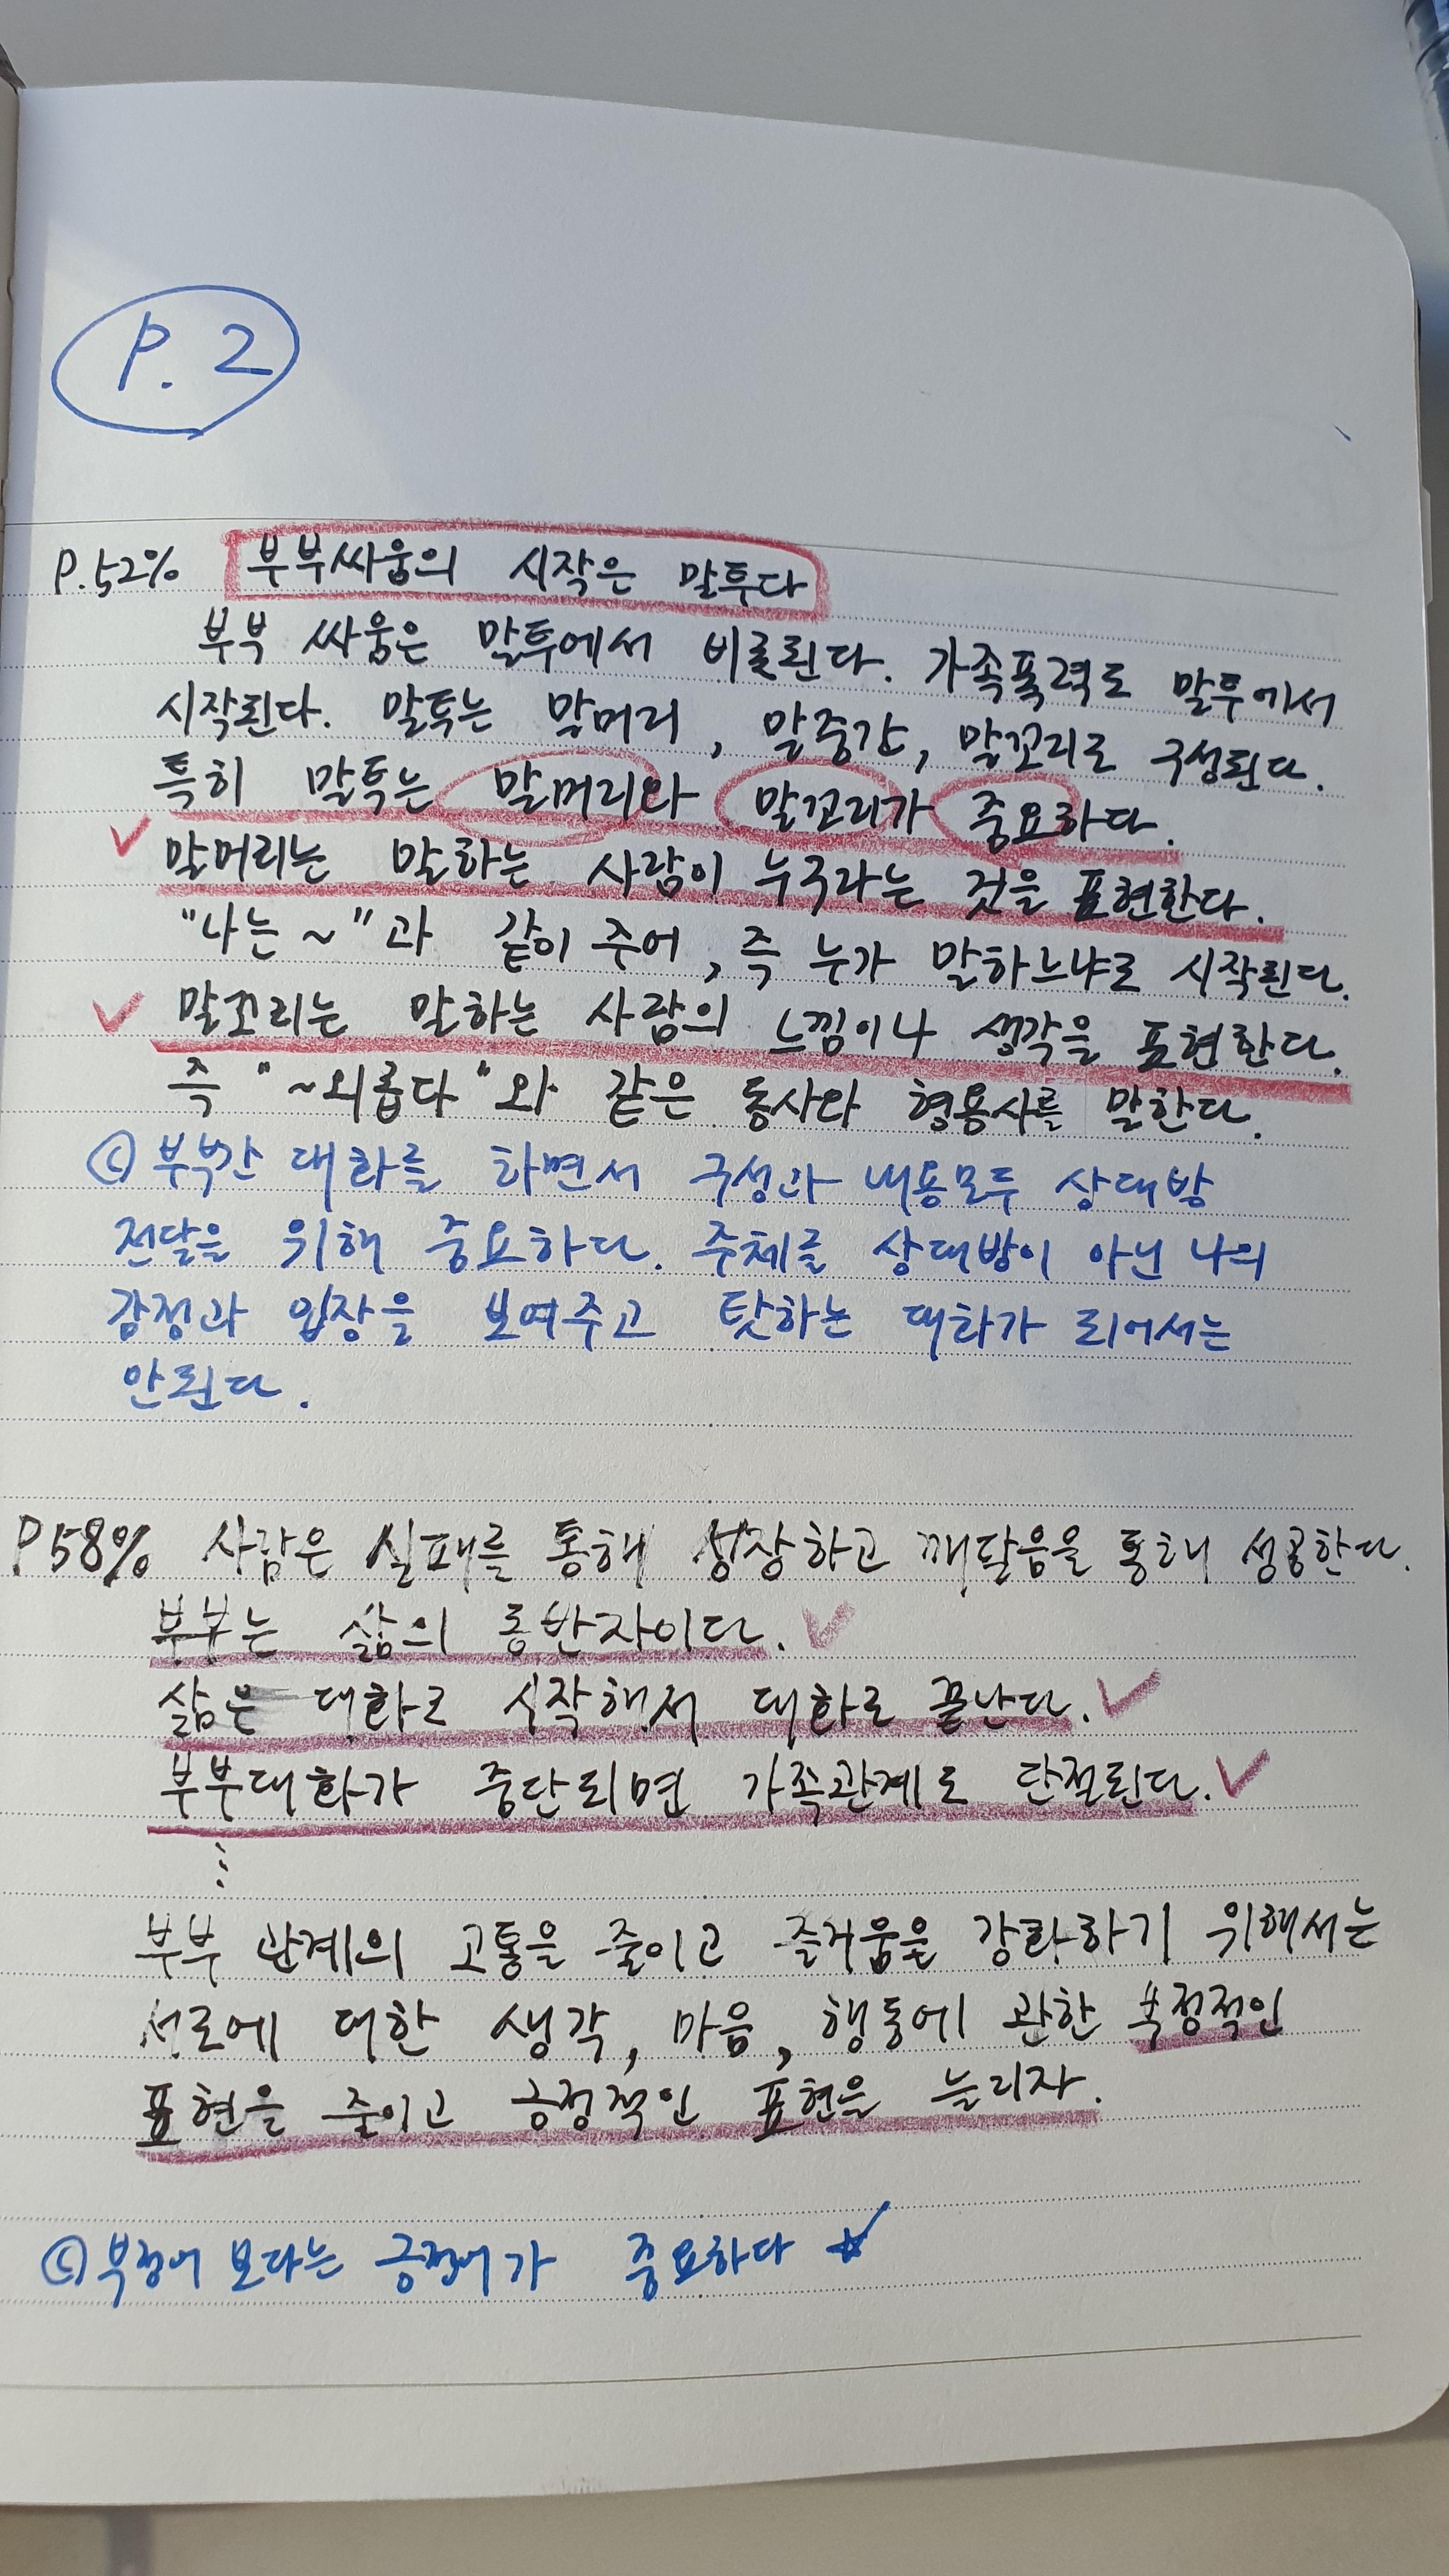 P. 2
P.52% 부부싸움의 시작은 말투다
부부 싸움은 말투에서 비롯된다. 가족폭력도 말투에서
시작된다. 말투는 말머리, 말중간, 말꼬리로 구성된다.
특히 말투는 말머리와 말꼬리가 중요하다.
말머리는 말하는 사람이 누구라는 것을 표현한다.
"나는~"과 같이 주어, 즉 누가 말하느냐로 시작된다.
말꼬리는 말하는 사람의 느낌이나 생각을 표현한다.
즉 "~외롭다"와 같은 동사와 형용사를 말한다.
ⓒ 부부간 대화를 하면서 구성과 내용모두 상대방
전달을 위해 중요하다. 주체를 상대방이 아닌 나의
감정과 입장을 보여주고 탓하는 대화가 되어서는
안된다.
P58% 사람은 실패를 통해 성장하고 깨달음을 통해 성공한다.
부부는 삶의 동반자이다.
삶은 대화로 시작해서 대화로 끝난다.
부부대화가 중단되면 가족관계도 단절된다.
⋮
부부 관계의 고통을 줄이고 즐거움을 강화하기 위해서는
서로에 대한 생각, 마음, 행동에 관한 부정적인
표현을 줄이고 긍정적인 표현을 늘리자.
ⓒ 부정어 보다는 긍정어가 중요하다 ☆